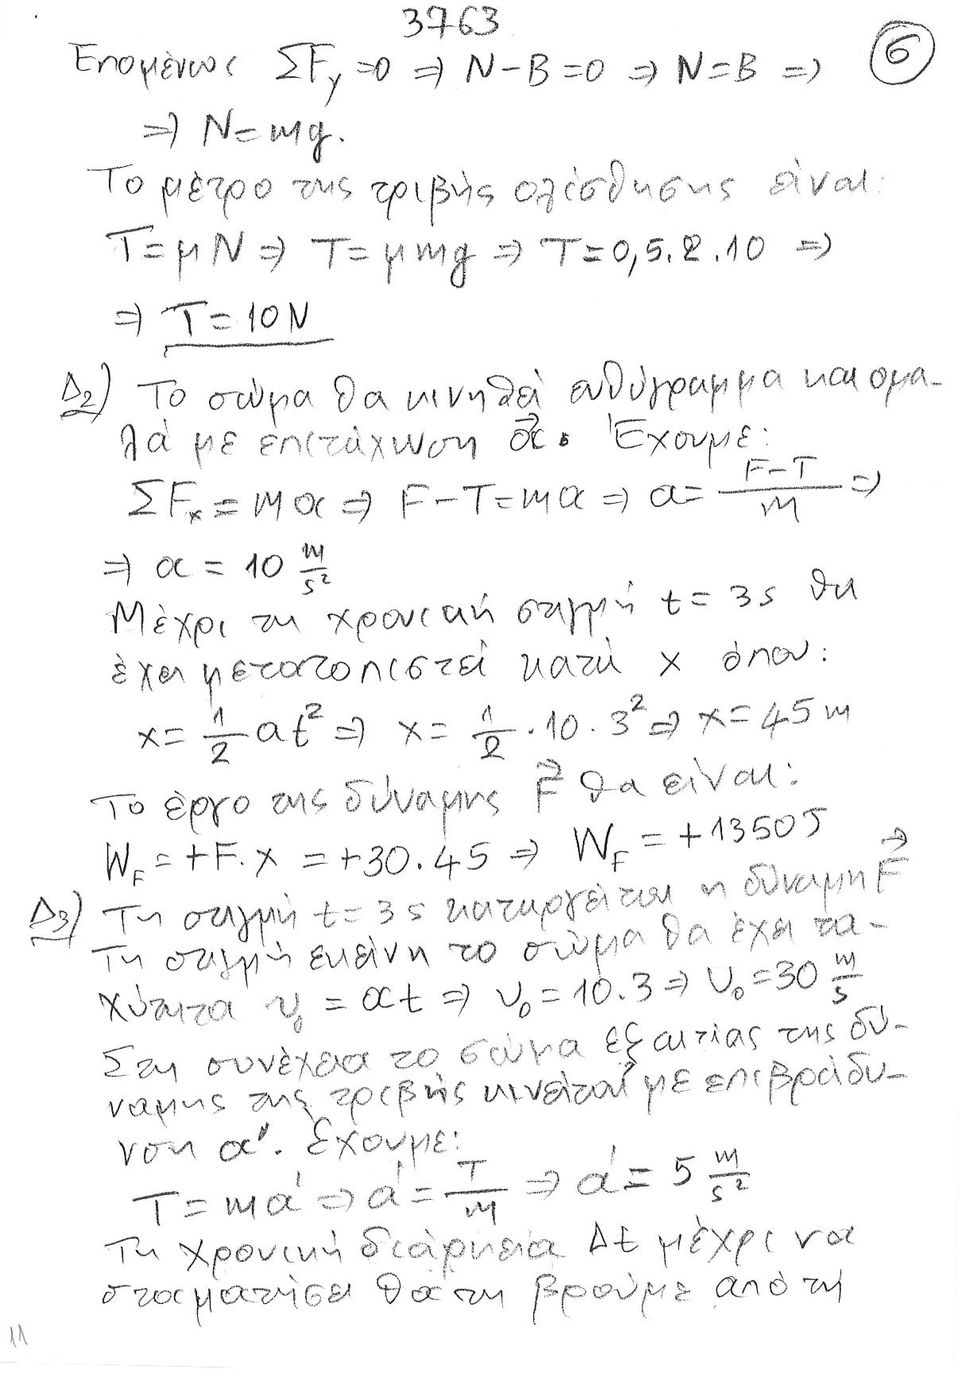 3763
6
Επομένως ΣFy=0 ⇒ N-B=0 ⇒ N=B ⇒
⇒ N=mg.
Το μέτρο της τριβής ολίσθησης είναι:
T=μN ⇒ T=μmg ⇒ T=0,5.2.10 ⇒
⇒ T=10N
Δ2) Το σώμα θα κινηθεί ευθύγραμμα και ομα-
λά με επιτάχυνση α⃗. Έχουμε:
ΣFx=mα ⇒ F-T=mα ⇒ α=F-T/m ⇒
⇒ α=10 m/s²
Μέχρι τη χρονική στιγμή t=3s θα
έχει μετατοπιστεί κατά x όπου:
x=1/2 αt² ⇒ x=1/2·10·3² ⇒ x=45m
Το έργο της δύναμης F⃗ θα είναι:
WF=+F·x=+30.45 ⇒ WF=+1350J
Δ3) Τη στιγμή t=3s καταργείται η δύναμη F⃗
Τη στιγμή εκείνη το σώμα θα έχει τα-
χύτητα υ₀=αt ⇒ υ₀=10.3 ⇒ υ₀=30 m/s
Στη συνέχεια το σώμα εξαιτίας της δύ-
ναμης της τριβής κινείται με επιβράδυ-
νση α'. Έχουμε:
T=mα' ⇒ α'=T/m ⇒ α'=5 m/s²
Τη χρονική διάρκεια Δt μέχρι να
σταματήσει θα τη βρούμε από τη
11